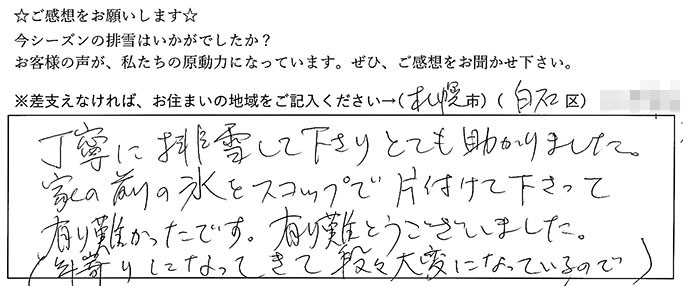 ☆ご感想をお願いします☆
今シーズンの排雪はいかがでしたか？
お客様の声が、私たちの原動力になっています。ぜひ、ご感想をお聞かせ下さい。
※差支えなければ、お住まいの地域をご記入ください→(札幌市)(白石区)
丁寧に排雪して下さりとても助かりました。
家の前の氷をスコップで片付けて下さって
有り難かったです。有り難とうございました。
(年寄りになってきて段々大変になっているので)